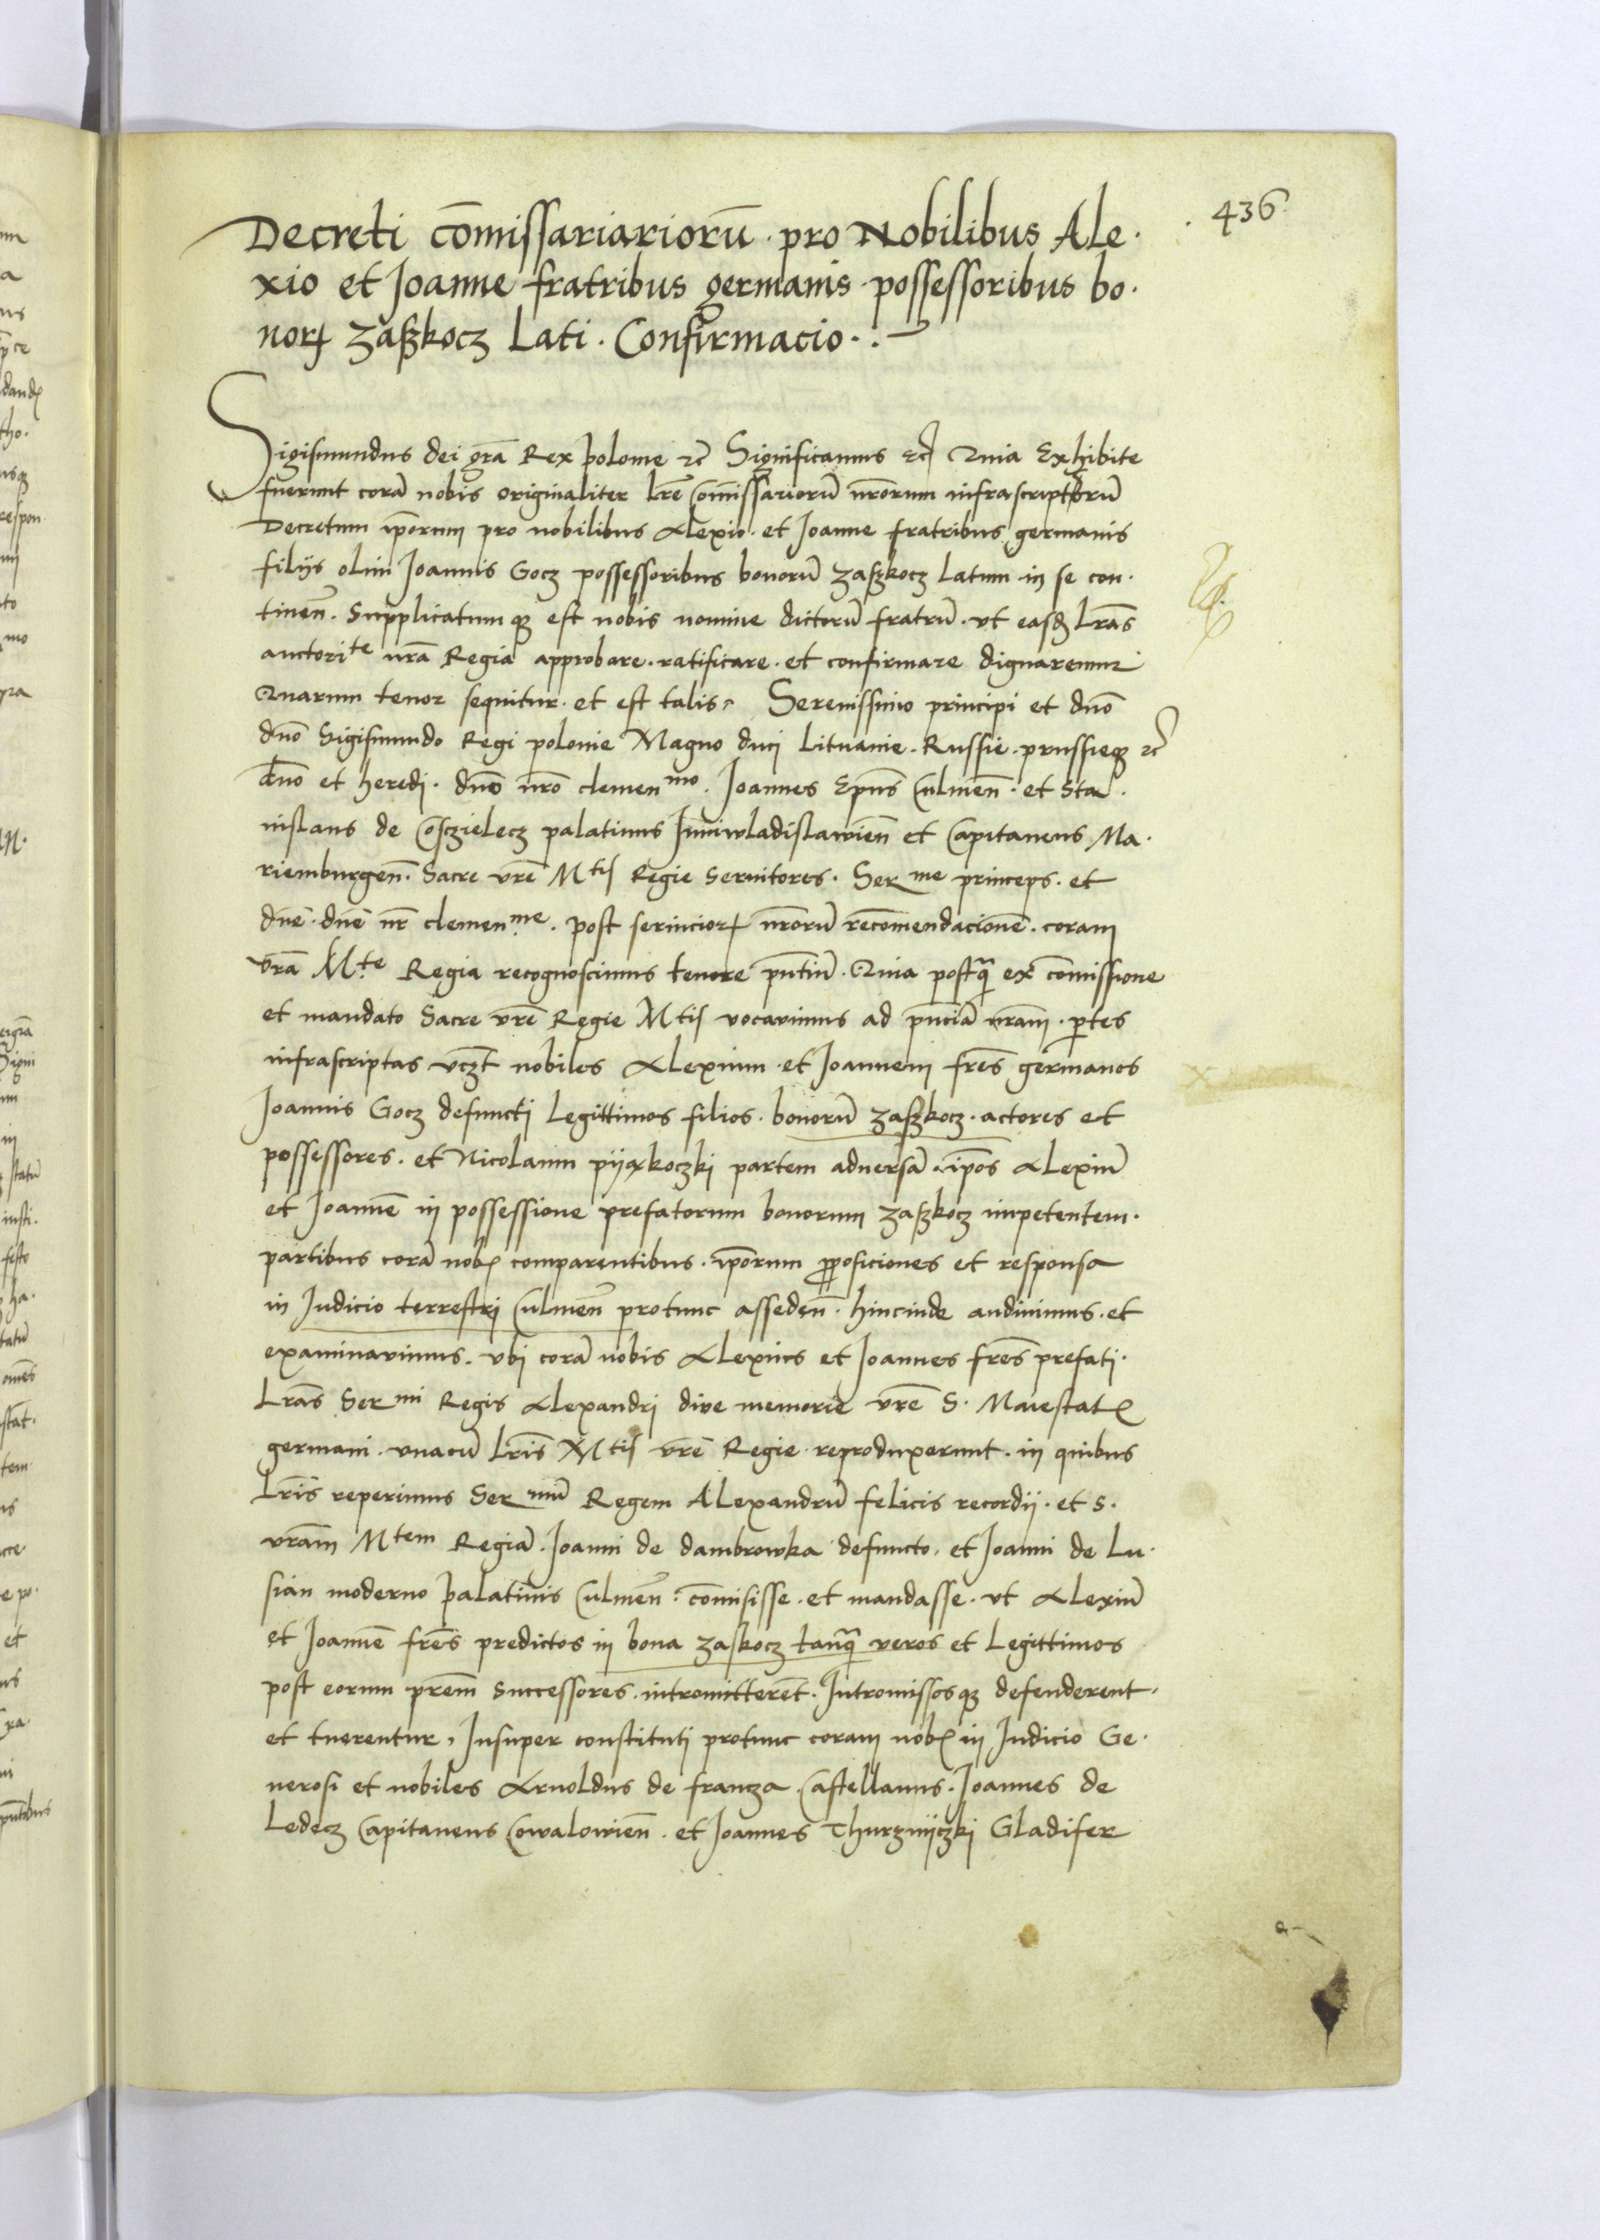 436
Decreti cōmissariariorū pro Nobilibus Ale·
xio et Joanne fratribus germanis possessoribus bo·
norꝝ Zaßkocz Lati. Confirmacio.
Sigismundus dei grā Rex Polonie ꝛc̄ Significamus ꝛc̄ Quia Exhibite
fuerunt corā nobis originaliter lrē Com̄issariorū nr̄orum infrascriptorū
Decretum ip̄orum pro nobilibus Alexio et Joanne fratribus germanis
filijs olim Joannis Gocz possessoribus bonorū Zaßkocz Latum in se con·
tinen̄. Supplicatumqꝫ est nobis nomine dictorū fratrū. vt easdꝫ lrās
auctorite nrā Regia approbare. ratificare. et confirmare dignaremur
Quarum tenor sequitur et est talis. Serenissimo principi et dn̄o
dn̄o Sigismundo Regi polonie Magno duci Lituanie. Russie. prussieqꝫ ꝛc̄
dn̄o et heredi. dn̄o nr̄o clemenmo. Joannes Ep̄us Culmen̄. et Sta·
nislaus de Cosczielecz palatinus Juniwladislawien̄ et Capitaneus Ma·
riemburgen̄. Sacre vr̄e Mtis Regie seruitores. Serme princeps. et
dn̄e. dn̄e nr̄ clemenme. post seruiciorꝝ nr̄orū recōmendacionē. coram
vrā Mte Regia recognoscimus tenore pn̄tiū. Quia postqꝫ ex cōmissione
et mandato Sacre vr̄e Regie Mtis vocauimus ad pn̄ciā nrām. ptes
infrascriptas vcꝫt nobiles Alexium et Joannem frēs germanos
Joannis Gocz defuncti legittimos filios. bonorū Zaßkocz. actores et
possessores. et Nicolaum pijaxkoczki partem aduersā. ip̄os Alexiū
et Joannē in possessione prefatorum bonorum Zaßkocz impetentem.
partibus corā nobꝭ comparentibus. ip̄orum ꝓposiciones et responsa
in Judicio terrestri Culmen̄ protunc asseden̄. hincinde audiuimus. et
examinauimus. vbi corā nobis Alexius et Joannes frēs prefati.
Lrās Sermi Regis Alexandri diue memorie vr̄e S. Maiestatꝭ
germani. vnacū lrīs Mtis vr̄e Regie reproduxerunt. in quibus
Lrīs reperimus Sermū Regem Alexandrū felicis recordij. et S.
vrām Mtem Regiā. Joanni de dambrowka defuncto. et Joanni de Lu·
sian moderno palatinis Culmen̄. cōmisisse. et mandasse. vt Alexiū
et Joannē frēs predictos in bona Zaskocz tanqꝫ veros et legittimos
post eorum prēm successores. intromitterēt. Intromissosqꝫ defenderent.
et tuerentur, Insuper constituti protunc coram nobꝭ in Judicio Ge·
nerosi et nobiles Arnoldus de francza Castellanus. Joannes de
Ledecz Capitaneus Cowalowien̄. et Joannes Thurznijczki Gladifer